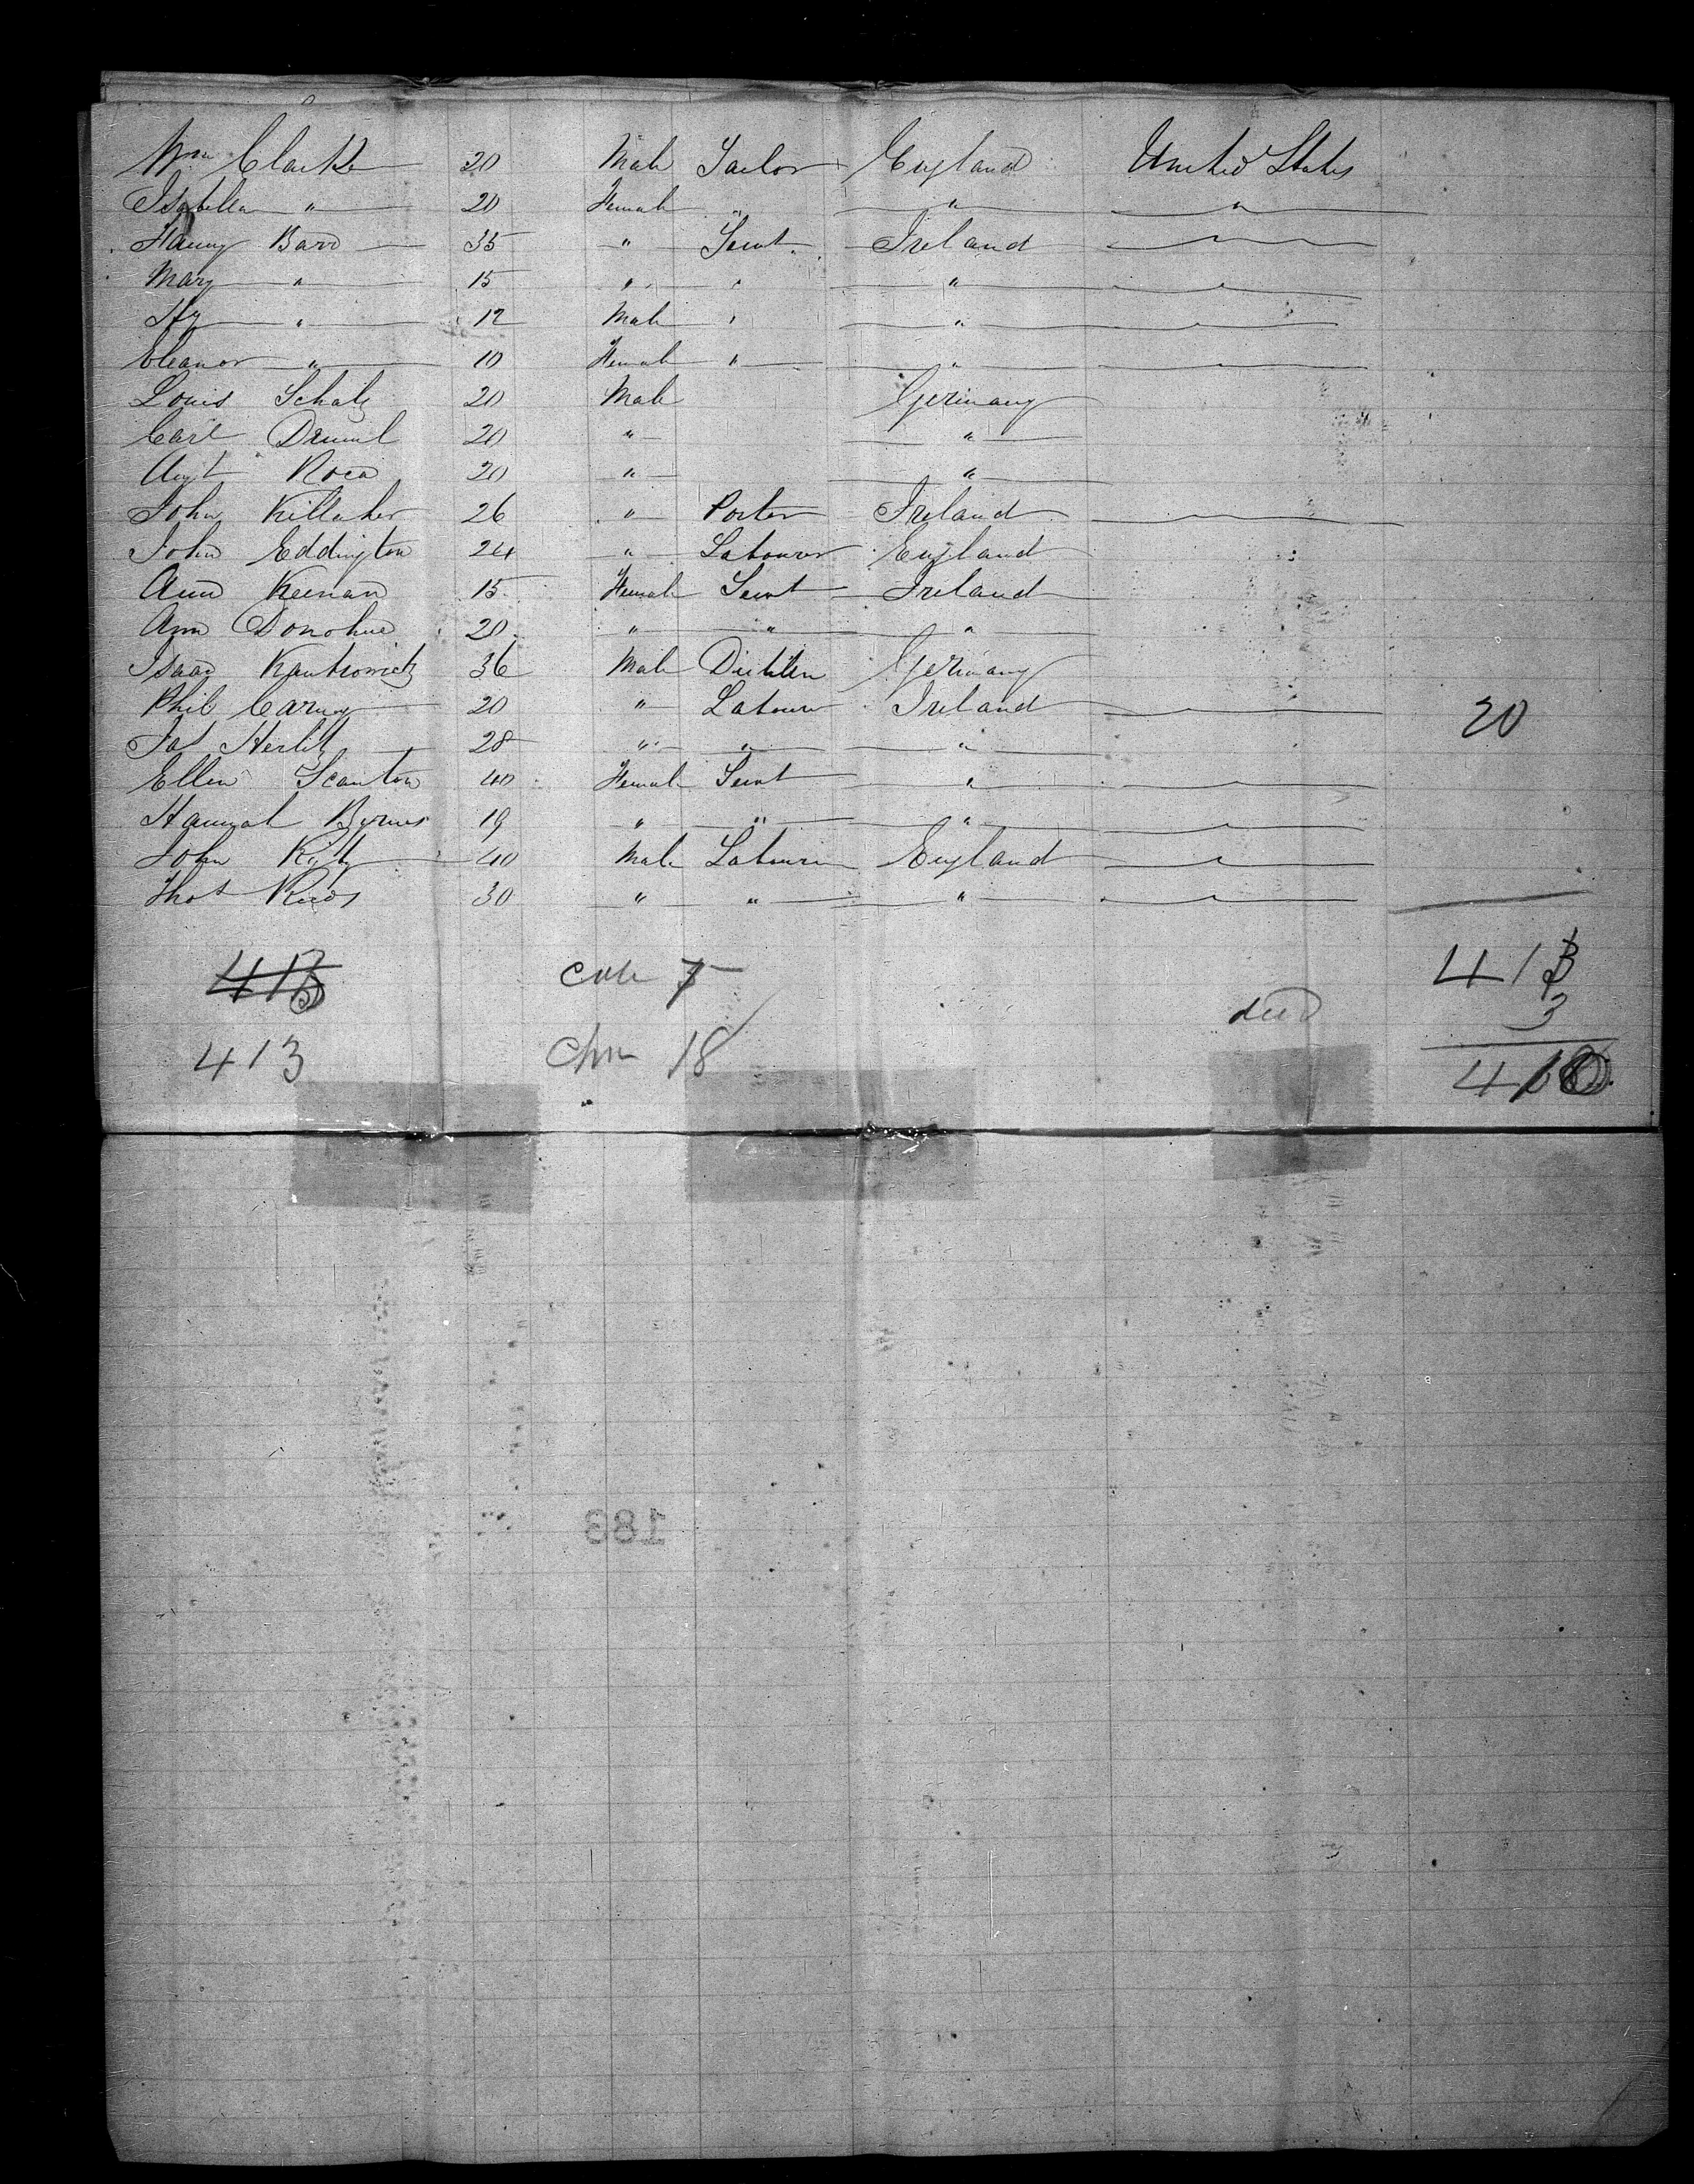 Wm Clarke 20 Male Tailor England United States
Isabella " 20 Female " " "
Hanny Barr 35 " Servt Ireland
Mary " 15 " " "
Hy " 12 Male " "
Eleanor " 10 Female " "
Louis Schalz 20 Male Germany
Carl 20 " "
Augt Roca 20 " "
John Killaher 26 " Porter Ireland
John Eddington 24 " Labourer England
Ann Keenan 15 Female Servt Ireland
Ann Donohue 20 " " "
Isaac Kantrowich 36 Male Germany
Phil Carney 20 " Labourer Ireland 20
Jas 28 " " "
Ellen Scanton 40 Female Servt "
Hannah Byrnes 19 " " "
John 40 Male Labourer England
Thos 30 " " "
413 7 413
died 3
413 18 410
183